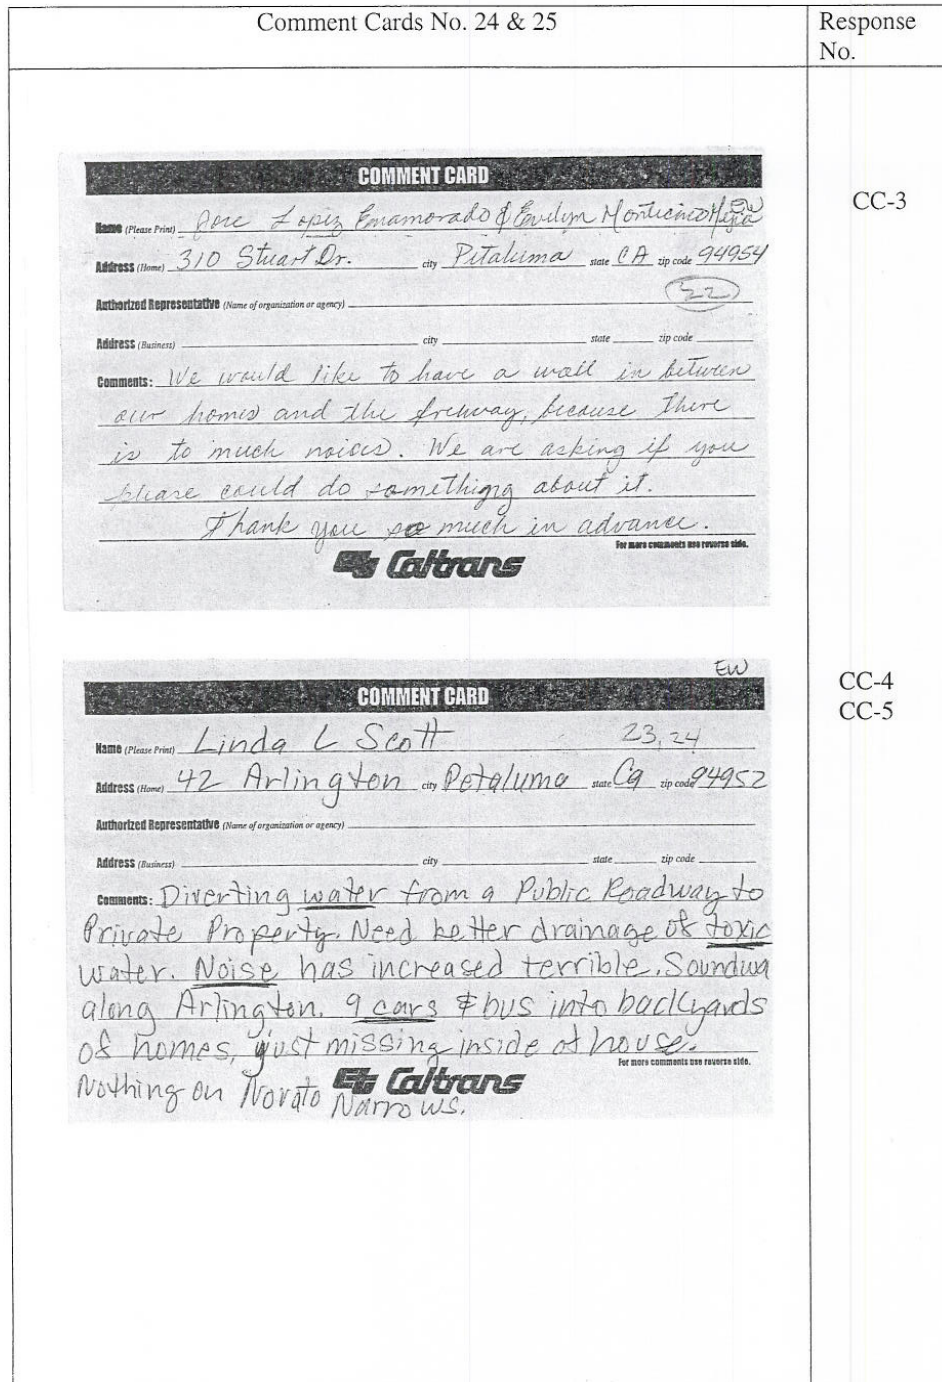 Comment Cards No. 24 & 25
Response
No.
COMMENT CARD
CC-3
EW
Name (Please Print) Jose Lopez Enamorado & Evelyn Montecinos Mejia
Address (Home) 310 Stuart Dr. city Petaluma state CA zip code 94954
22
Authorized Representative (Name of organization or agency)
Address (Business) city state zip code
Comments: We would like to have a wall in between
our homes and the freeway, because there
is to much noices. We are asking if you
please could do somethigng about it.
Thank you so much in advance.
For more comments use reverse side.
Caltrans
EW
CC-4
CC-5
COMMENT CARD
Name (Please Print) Linda L Scott 23, 24
Address (Home) 42 Arlington city Petaluma state Ca zip code 94952
Authorized Representative (Name of organization or agency)
Address (Business) city state zip code
Comments: Diverting water from a Public Roadway to
Private Property. Need better drainage of toxic
water. Noise has increased terrible. Soundwa
along Arlington. 9 cars & bus into backyards
of homes, just missing inside of house.
For more comments use reverse side.
Nothing on Novato Narrows.
Caltrans